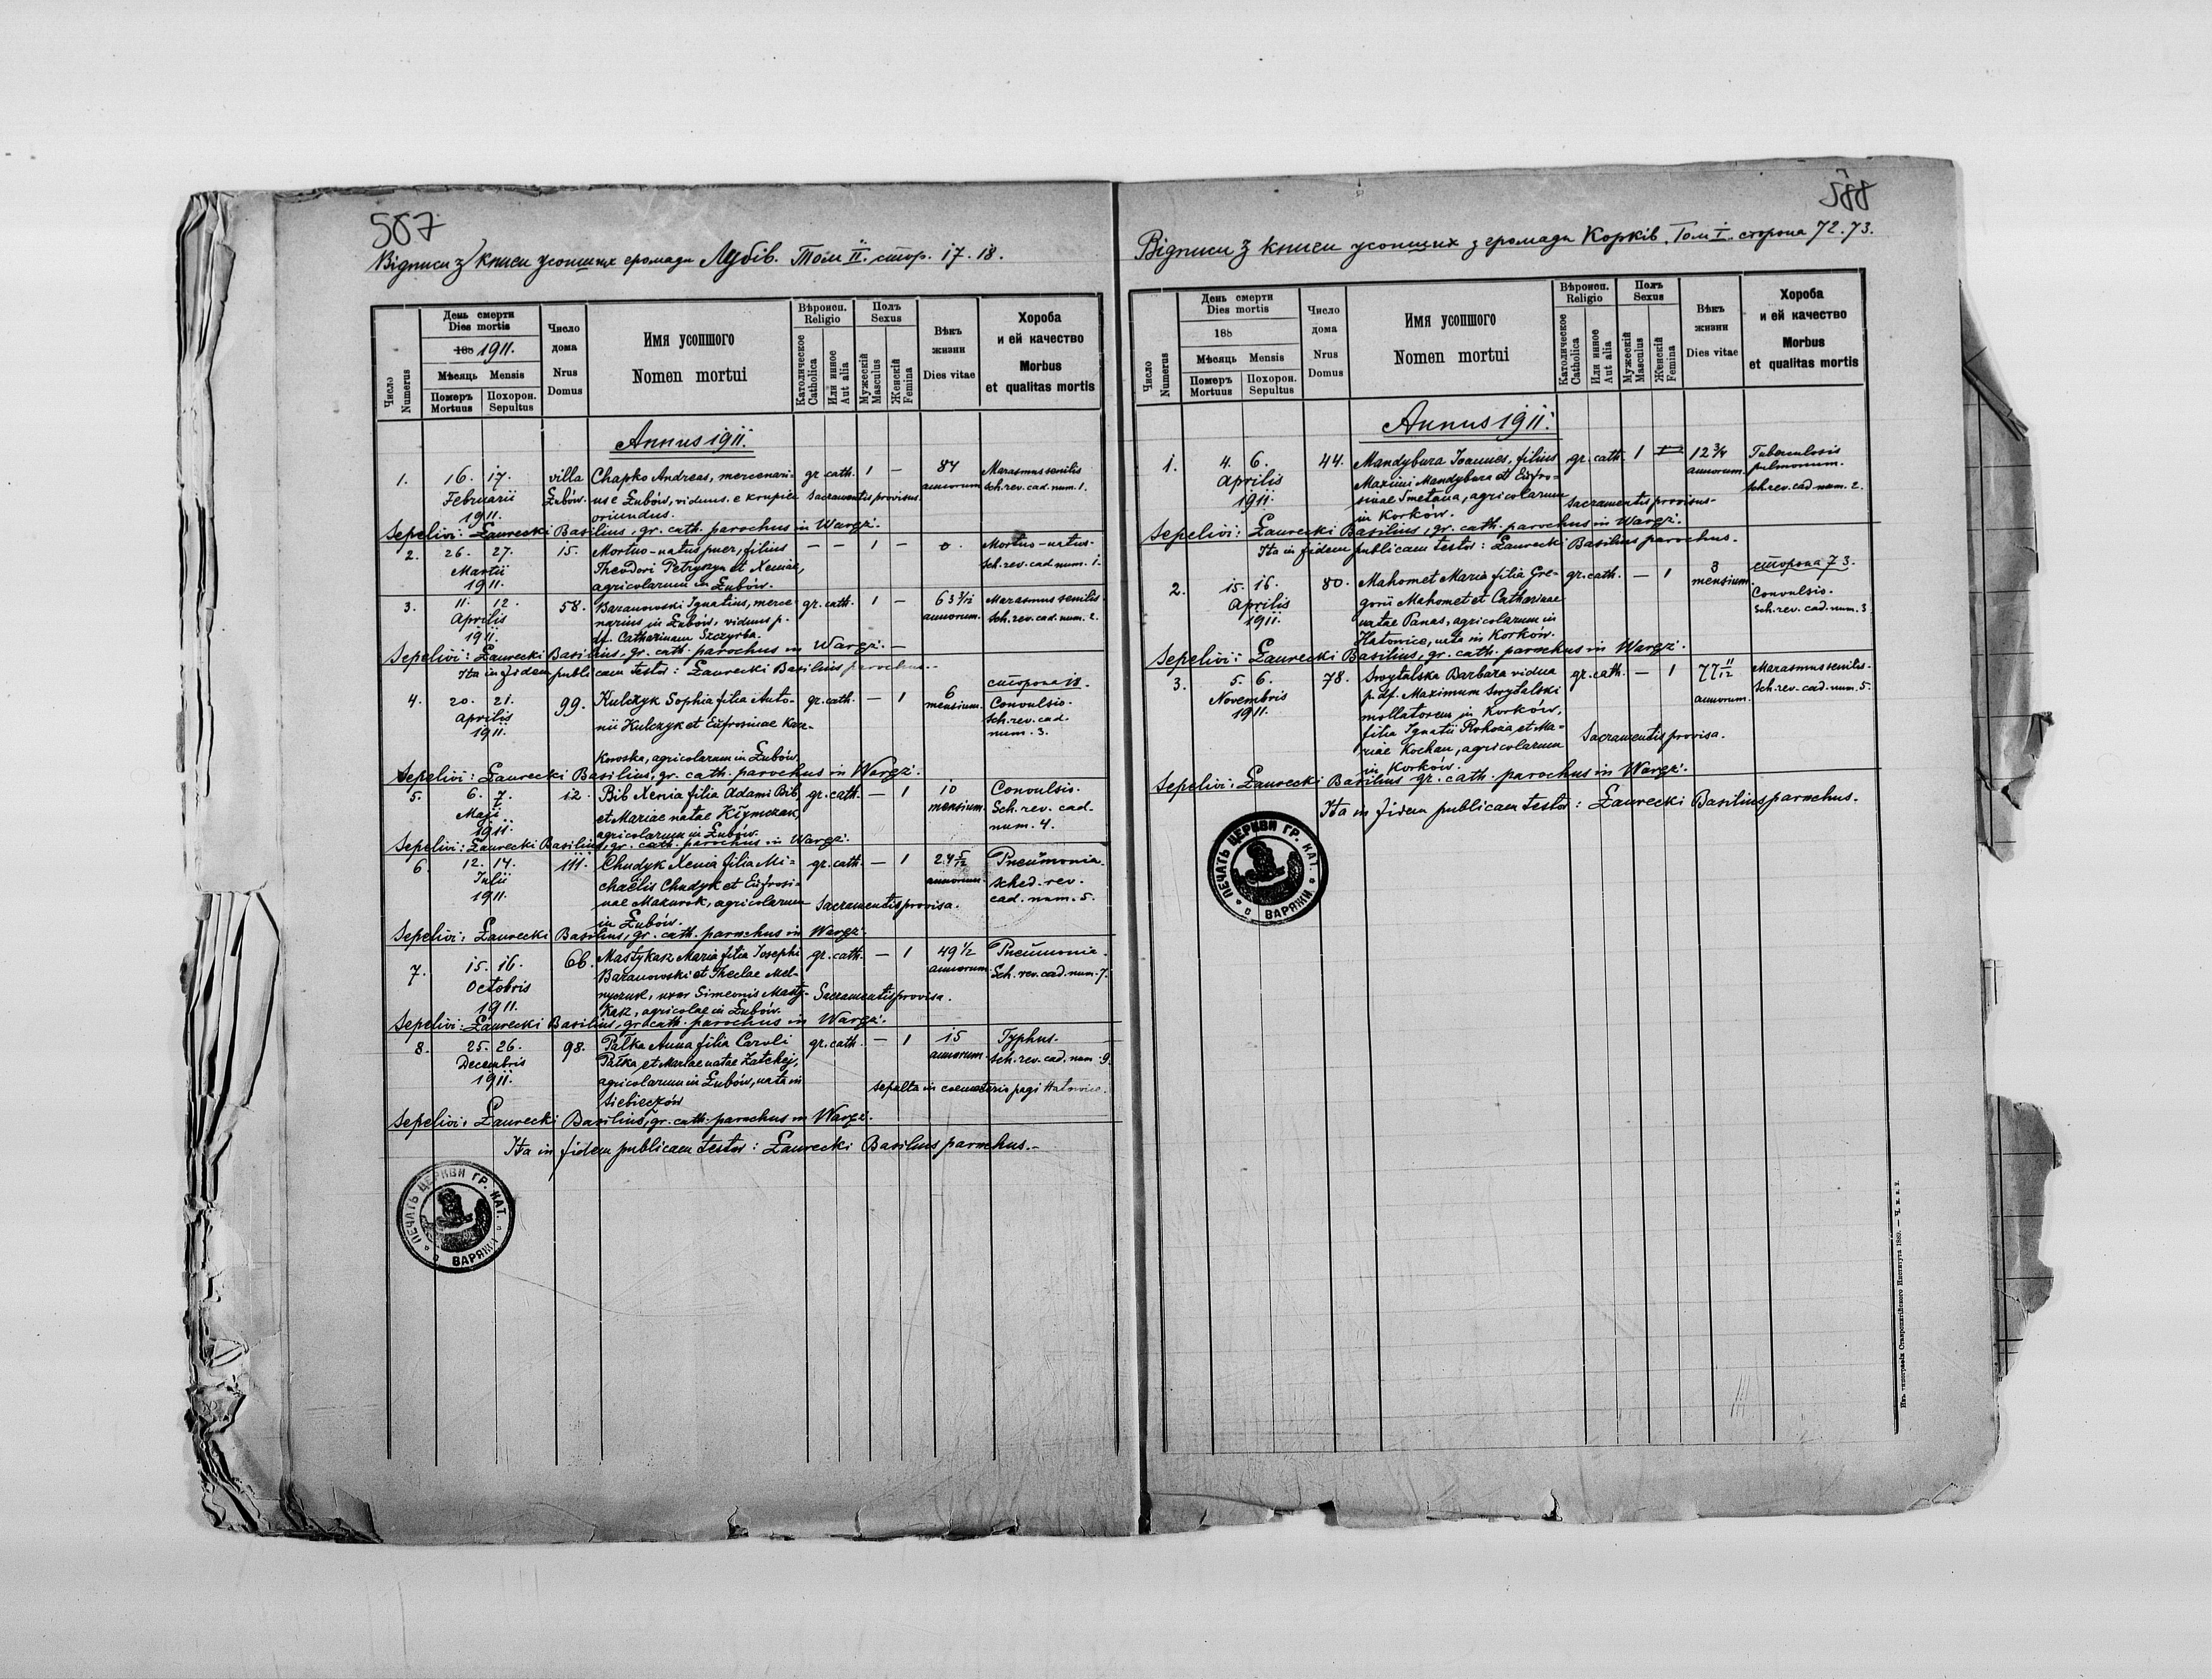 507
Відписи з книги усопших громади Лубів. Том II. стор. 17. 18.
Число
Numerus
День смерти
Dies mortis
188 1911.
Мѣсяць Mensis
Померъ
Mortuus
Похорон.
Sepultus
Число
дома
Nrus
Domus
Имя усопшого
Nomen mortui
Вѣроисп.
Religio
Католическое
Catholica
Или инное
Aut alia
Полъ
Sexus
Мужескій
Masculus
Женскій
Femina
Вѣкъ
жизни
Dies vitae
Хороба
и ей качество
Morbus
et qualitas mortis
Annus 1911.
1. 16. 17. villa Chapko Andreas, mercenari- gr. cath. 1 — 84 Marasmus senilis
Februarii Łubów. us e Łubów, viduus. e Krupiec Sacramentis provisus. annorum Sch. rev. cad. num. 1.
1911. oriundus.
Sepelivi: Ławrecki Basilius, gr. cath. parochus in Waręż.
2. 26. 27. 15. Mortuo-natus puer, filius — — 1 — 0. Mortuo-natus.
Martii Theodori Petryszyn et Xeniae, Sch. rev. cad. num. 1.
1911. agricolarum in Łubów.
3. 11. 12. 58. Baranowski Ignatius, merce gr. cath. 1 — 63 3/12 Marasmus senilis.
Aprilis narius in Łubów, viduus p. annorum. Sch. rev. cad. num. 2.
1911. df. Catharinam Szczyrba.
Sepelivi: Ławrecki Basilius, gr. cath. parochus in Waręż. —
Ita in fidem publicam testor: Ławrecki Basilius parochus.
сторона 18.
4. 20. 21. 99. Kulczyk Sophia filia Anto- gr. cath. — 1 6 Convulsio.
Aprilis nii Kulczyk et Eufrosinae Kac- mensium. Sch. rev. cad.
1911. num. 3.
Kowska, agricolarum in Łubów.
Sepelivi: Ławrecki Basilius, gr. cath. parochus in Waręż.
5. 6. 7. 12. Bib Xenia filia Adami Bib, gr. cath. — 1 10 Convulsio.
Maji et Mariae natae Klymczak, mensium. Sch. rev. cad.
1911. agricolarum in Łubów. num. 4.
Sepelivi: Ławrecki Basilius, gr. cath. parochus in Waręż.
6. 12. 14. 111. Chudyk Xenia filia Mi- gr. cath. — 1 24 5/12 Pneumonia.
Julii chaëlis Chudyk et Eufrosi- annorum. Sched. rev.
1911. nae Mazurok, agricolarum Sacramentis provisa. cad. num. 5.
in Łubów.
Sepelivi: Ławrecki Basilius, gr. cath. parochus in Waręż.
7. 15. 16. 66. Mastykasz Maria filia Josephi gr. cath. — 1 49 1/2 Pneumonia.
Octobris Baranowski et Theclae Mel- annorum. Sch. rev. cad. num. 7.
1911. nyczuk, uxor Simeonis Masty- Sacramentis provisa.
kasz, agricolae in Łubów.
Sepelivi: Ławrecki Basilius, gr. cath. parochus in Waręż.
8. 25. 26. 98. Pałka Anna filia Caroli gr. cath. — 1 15 Typhus.
Decembris Pałka et Mariae natae Zatchej, annorum. Sch. rev. cad. num. 9.
1911. agricolarum in Łubów, nata in Sepulta in coemeterio pagi Hatowice.
Siebieczów
Sepelivi: Ławrecki Basilius, gr. cath. parochus in Waręż.
Ita in fidem publicam testor: Ławrecki Basilius parochus. —
ПЕЧАТЬ ЦЕРКВИ ГР. КАТ. в ВАРЯЖИ
588
Відписи з книги усопших з громади Корків. Том I. сторона 72. 73.
Число
Numerus
День смерти
Dies mortis
188
Мѣсяць Mensis
Померъ
Mortuus
Похорон.
Sepultus
Число
дома
Nrus
Domus
Имя усопшого
Nomen mortui
Вѣроисп.
Religio
Католическое
Catholica
Или инное
Aut alia
Полъ
Sexus
Мужескій
Masculus
Женскій
Femina
Вѣкъ
жизни
Dies vitae
Хороба
и ей качество
Morbus
et qualitas mortis
Annus 1911.
1. 4. 6. 44. Mandybura Joannes, filius gr. cath. 1 12 3/4 Tuberculosis
Aprilis Maximi Mandybura et Eufro- annorum. pulmonum.
1911. sinae Smetana, agricolarum Sacramentis provisus. Sch. rev. cad num. 2.
in Korków.
Sepelivi: Ławrecki Basilius, gr. cath. parochus in Waręż.
Ita in fidem publicam testor: Ławrecki Basilius parochus.
сторона 73.
2. 15. 16. 80. Mahomet Maria filia Gre- gr. cath. — 1 3 Convulsio.
Aprilis gorii Mahomet et Catharinae mensium. Sch. rev. cad. num. 3
1911. natae Panas, agricolarum in
Hatowice, nata in Korków.
Sepelivi: Ławrecki Basilius, gr. cath. parochus in Waręż.
3. 5. 6. 78. Swytalska Barbara vidua gr. cath. — 1 77 11/12 Marasmus senilis.
Novembris p. df. Maximum Swytalski annorum. Sch. rev. cad. num. 5.
1911. mollatorem in Korków,
filia Ignatii Rohoza et Ma- Sacramentis provisa.
riae Kochan, agricolarum
in Korków.
Sepelivi: Ławrecki Basilius gr. cath. parochus in Waręż.
Ita in fidem publicam testor: Ławrecki Basilius parochus.
ПЕЧАТЬ ЦЕРКВИ ГР. КАТ. в ВАРЯЖИ
Изъ типографіи Ставропигійского Института 1889. — Ч. в. з. 2.